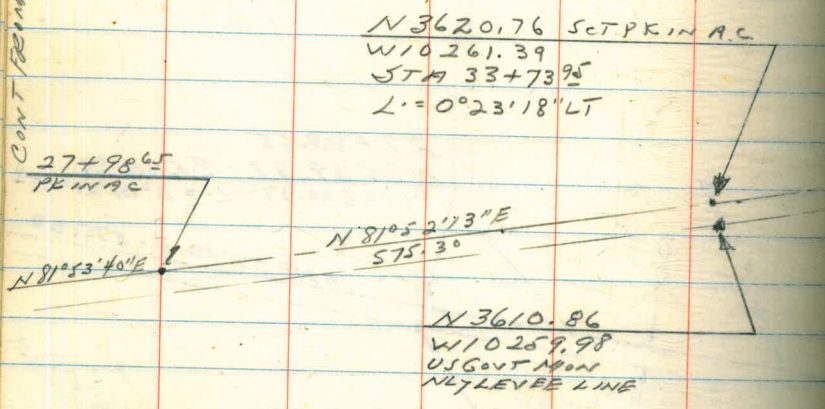 CONT FROM
N 3620.76 SET PK IN A.C
W10 261.39
STA 33+73 95
L = 0°23'18" LT
27+98 65
PK IN AC
N 81°52'13"E
575.30
N 81°53'40"E
N 3610.86
W10 259.98
US GOVT MON
NLY LEVEE LINE